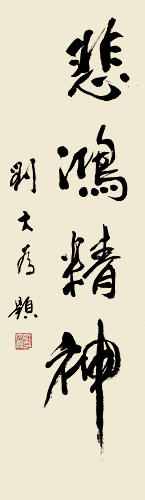 悲鴻精神
劉大為題